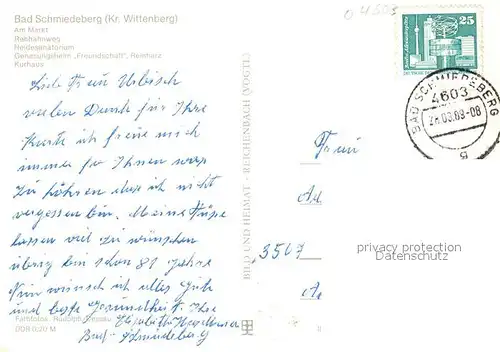 Bad Schmiedeberg (Kr. Wittenberg)
Am Markt
Rehhahnweg
Heidesanatorium
Genesungsheim „Freundschaft", Reinharz
Kurhaus
Liebe Frau Urbisch
vielen Dank für Ihre
Karte ich freue mich
immer von Ihnen was
zu hören das ich nicht
vergessen bin. Meine Füße
lassen viel zu wünschen
übrig bin schon 81 Jahre
Nun wünsch ich alles Gute
und beste Gesundheit Ihre
Elisabeth
Bad-Schmiedeberg
Farbfotos: Rudolph, Dessau
DDR 0,20 M
BILD UND HEIMAT · REICHENBACH (VOGTL)
4603
25
BAD SCHMIEDEBERG
4603
-08
Frau
3507
privacy protection
Datenschutz